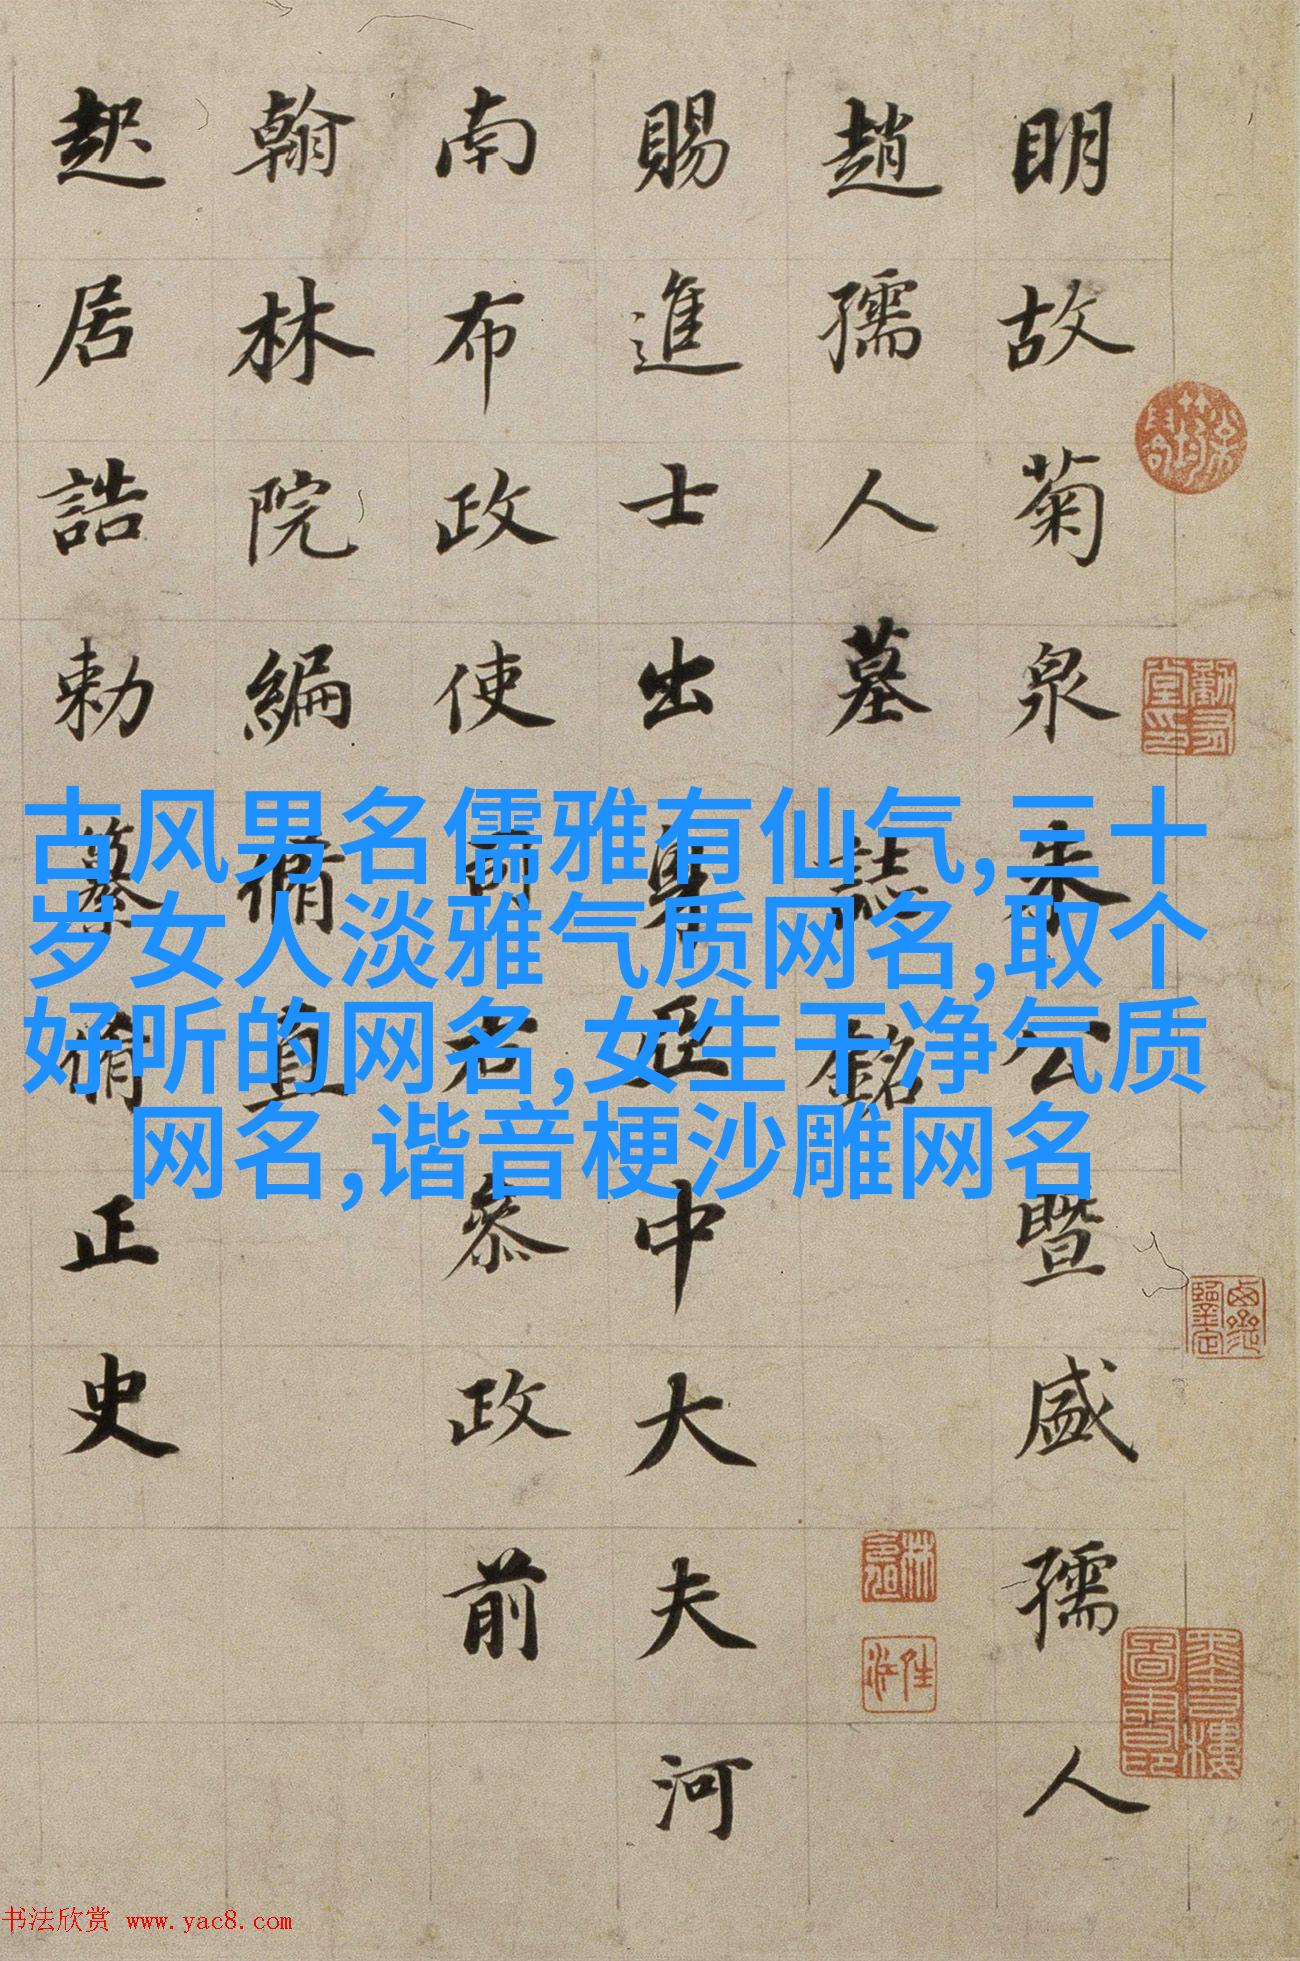 明故菊泉朱公暨盛孺人
趙孺人墓誌銘
賜進士出身亞中大夫河
南布政使司右參政前
翰林院編脩直
起居誥勅纂脩正史
古风男名儒雅有仙气,三十
岁女人淡雅气质网名,取个
好听的网名,女生干净气质
网名,谐音梗沙雕网名
书法欣赏 www.yac8.com